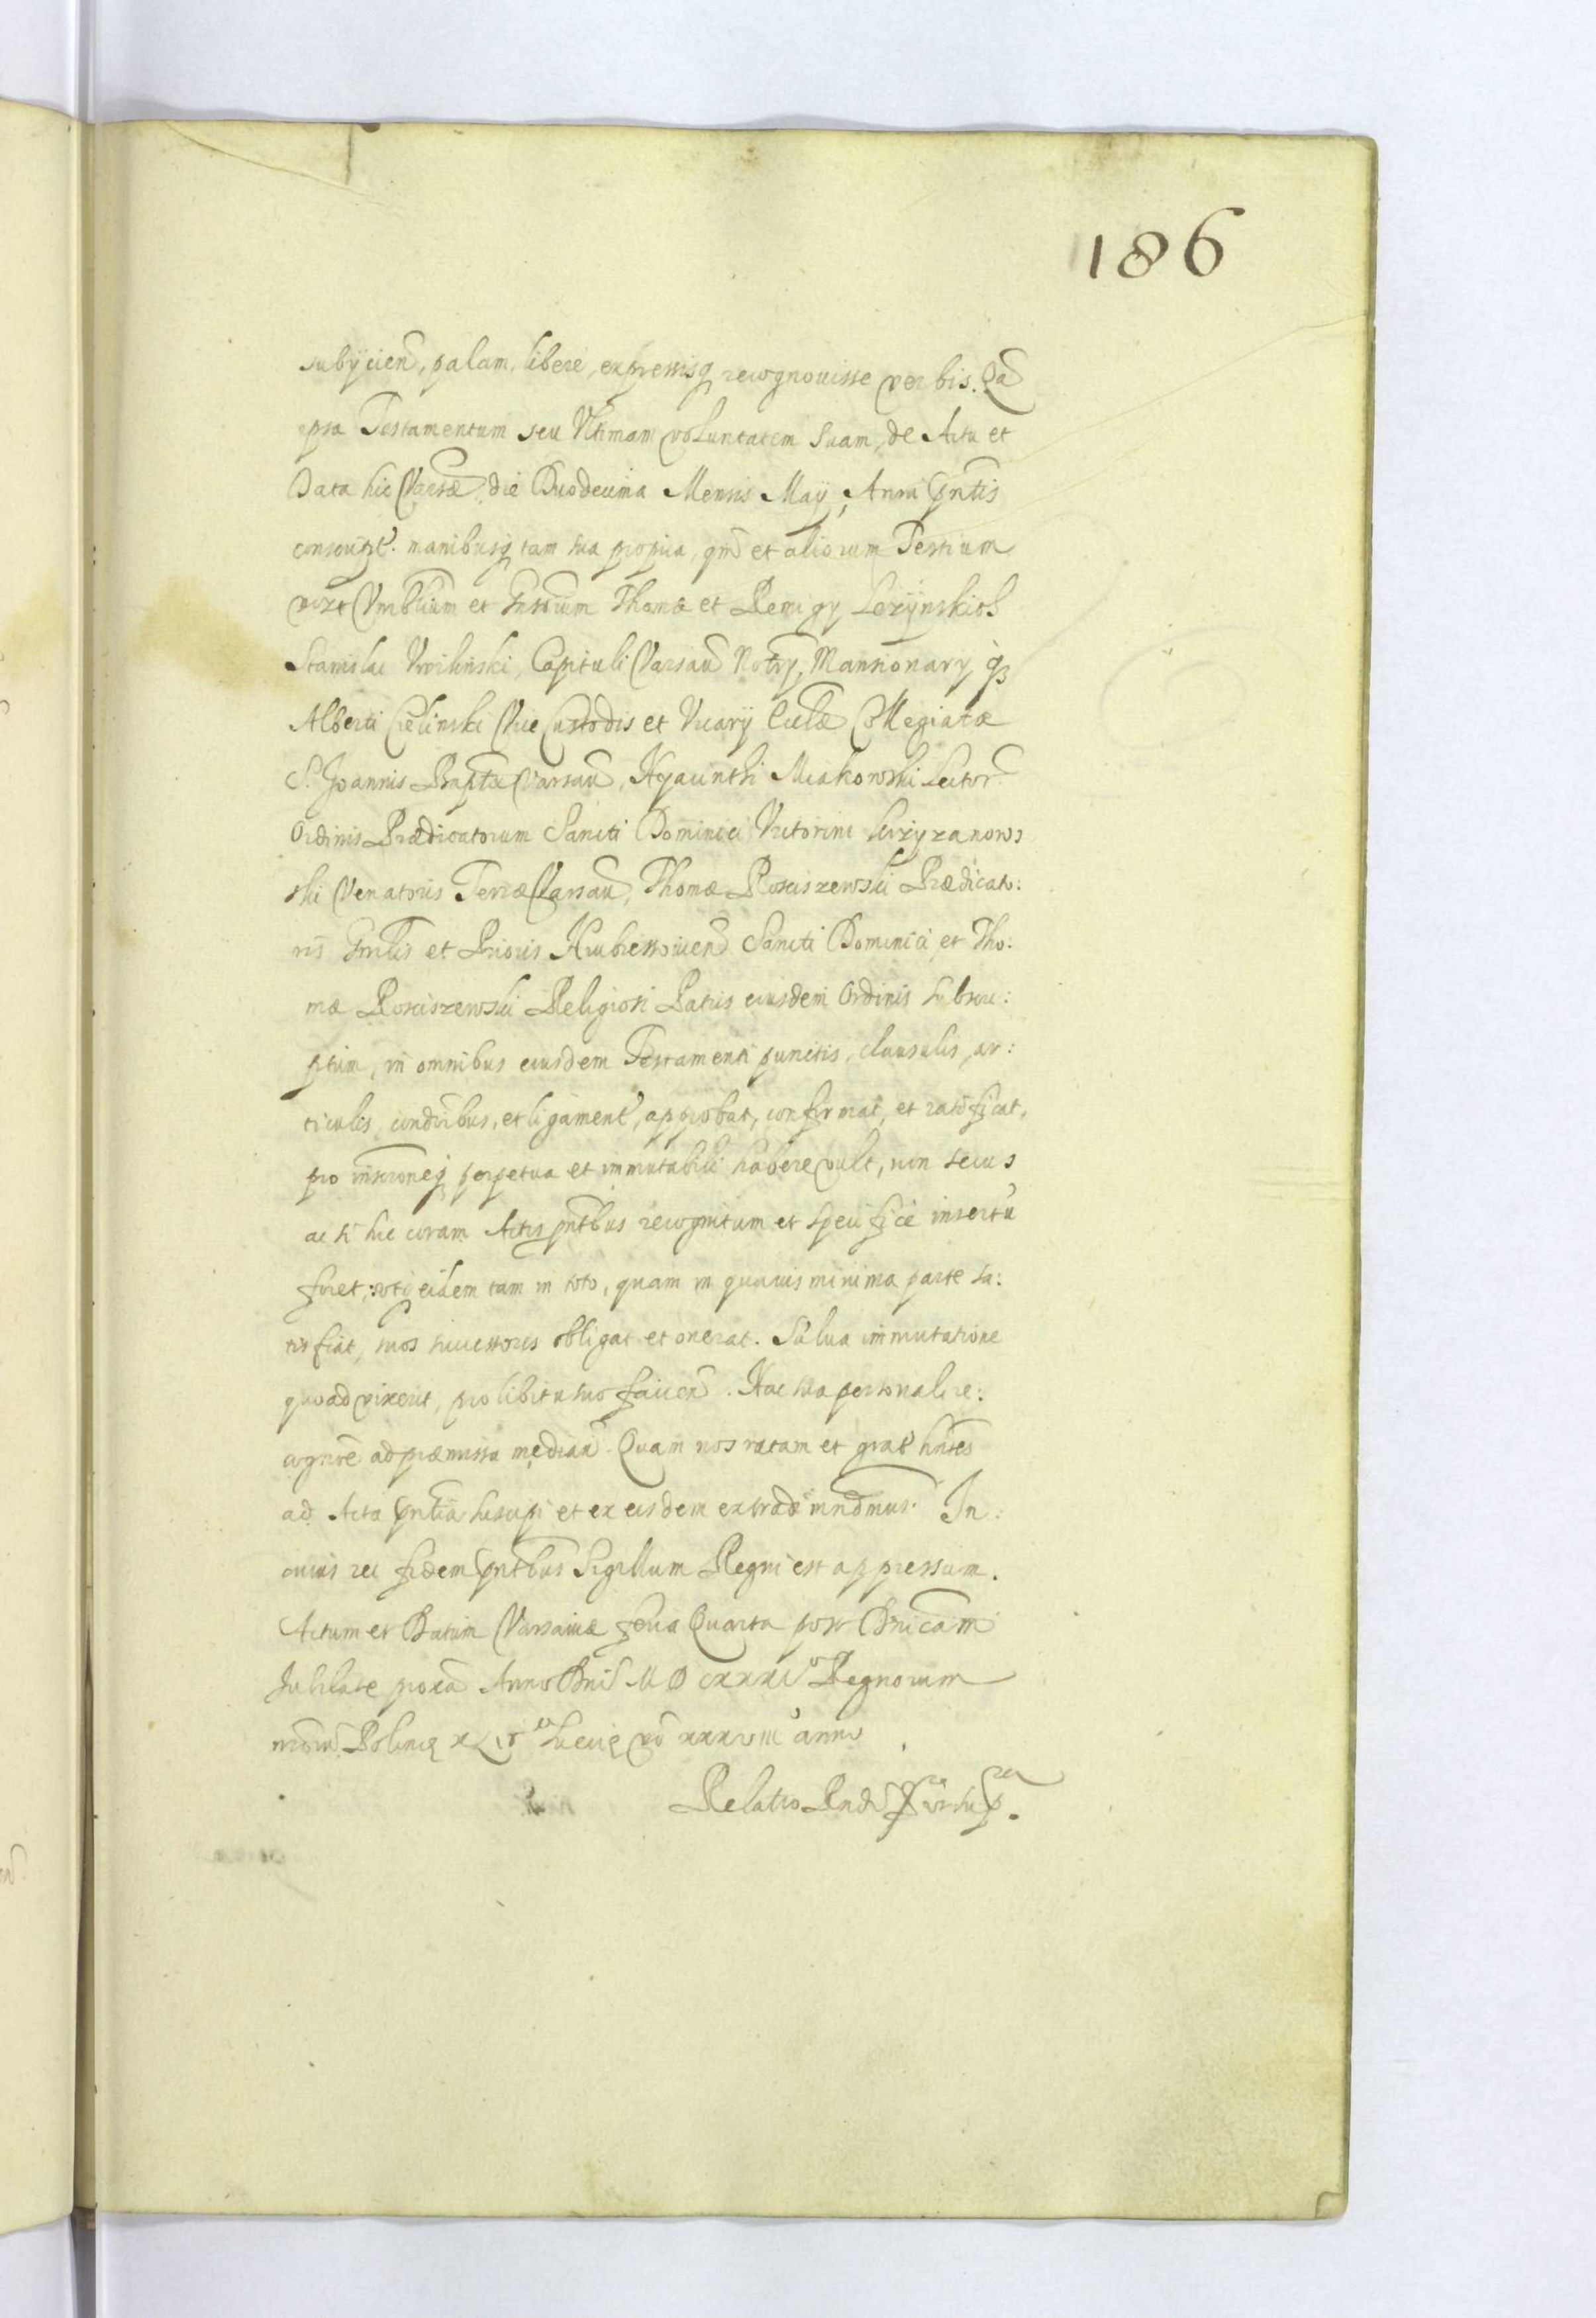 186
subÿcien, palam, libere, expressisq recognouisse verbis. Qa
ipsa Testamentum seu Vltimam voluntatem suam, de Actu et
Data hic Varsae, die Duodecima Mensis Maÿ, Anni pntis
manibusq tam sua propria, qm et aliorum Testium
et Thomae et Remigÿ
Stanislai Capituli Varsau Notrÿ, Mansionarÿ qz
Alberti Cielinski Vice Custodis et Vicarÿ Eccłae Collegiatae
S. Joannis Baptae Varsau, Hyacinthi Miakowski Lector
Ordinis Praedicatorum Sancti Dominici Victorini Krzyzanows
ski Venatoris Terrae Varsau, Thomae Rosciszewski Praedicato:
ris Gnrlis et Prioris Hrubiessouien Sancti Dominici et Tho:
mae Rosciszewski Religiosi Patris eiusdem Ordinis subscri:
ptum, in omnibus eiusdem Testamenti punctis, clausulis, ar:
ticulis, condnibus, et ligament, approbat, confirmat, et ratificat,
pro perpetua et immutabili habere vult, non secus
ac si hic coram Actis pntibus recognitum et specifice insertu
foret, utq eidem tam in toto, quam in quauis minima parte sa:
tisfiat, suos successores obligat et onerat. Salua immutatione
quoad vixerit, pro libitu suo facien. Hac sua personali re:
cognoe ad praemissa median. Quam nos ratam et grat hntes
ad Acta pntia suscipi et ex eisdem extradi mndmus. In
cuius rei fidem pntibus Sigillum Regni est appressum.
Actum et Datum Varsauiae feria Quarta post Dnicam
Jubilate Anno Dni Regnorum
nrorum Poloniq Sueciq vo xxxviii anno
Relatio